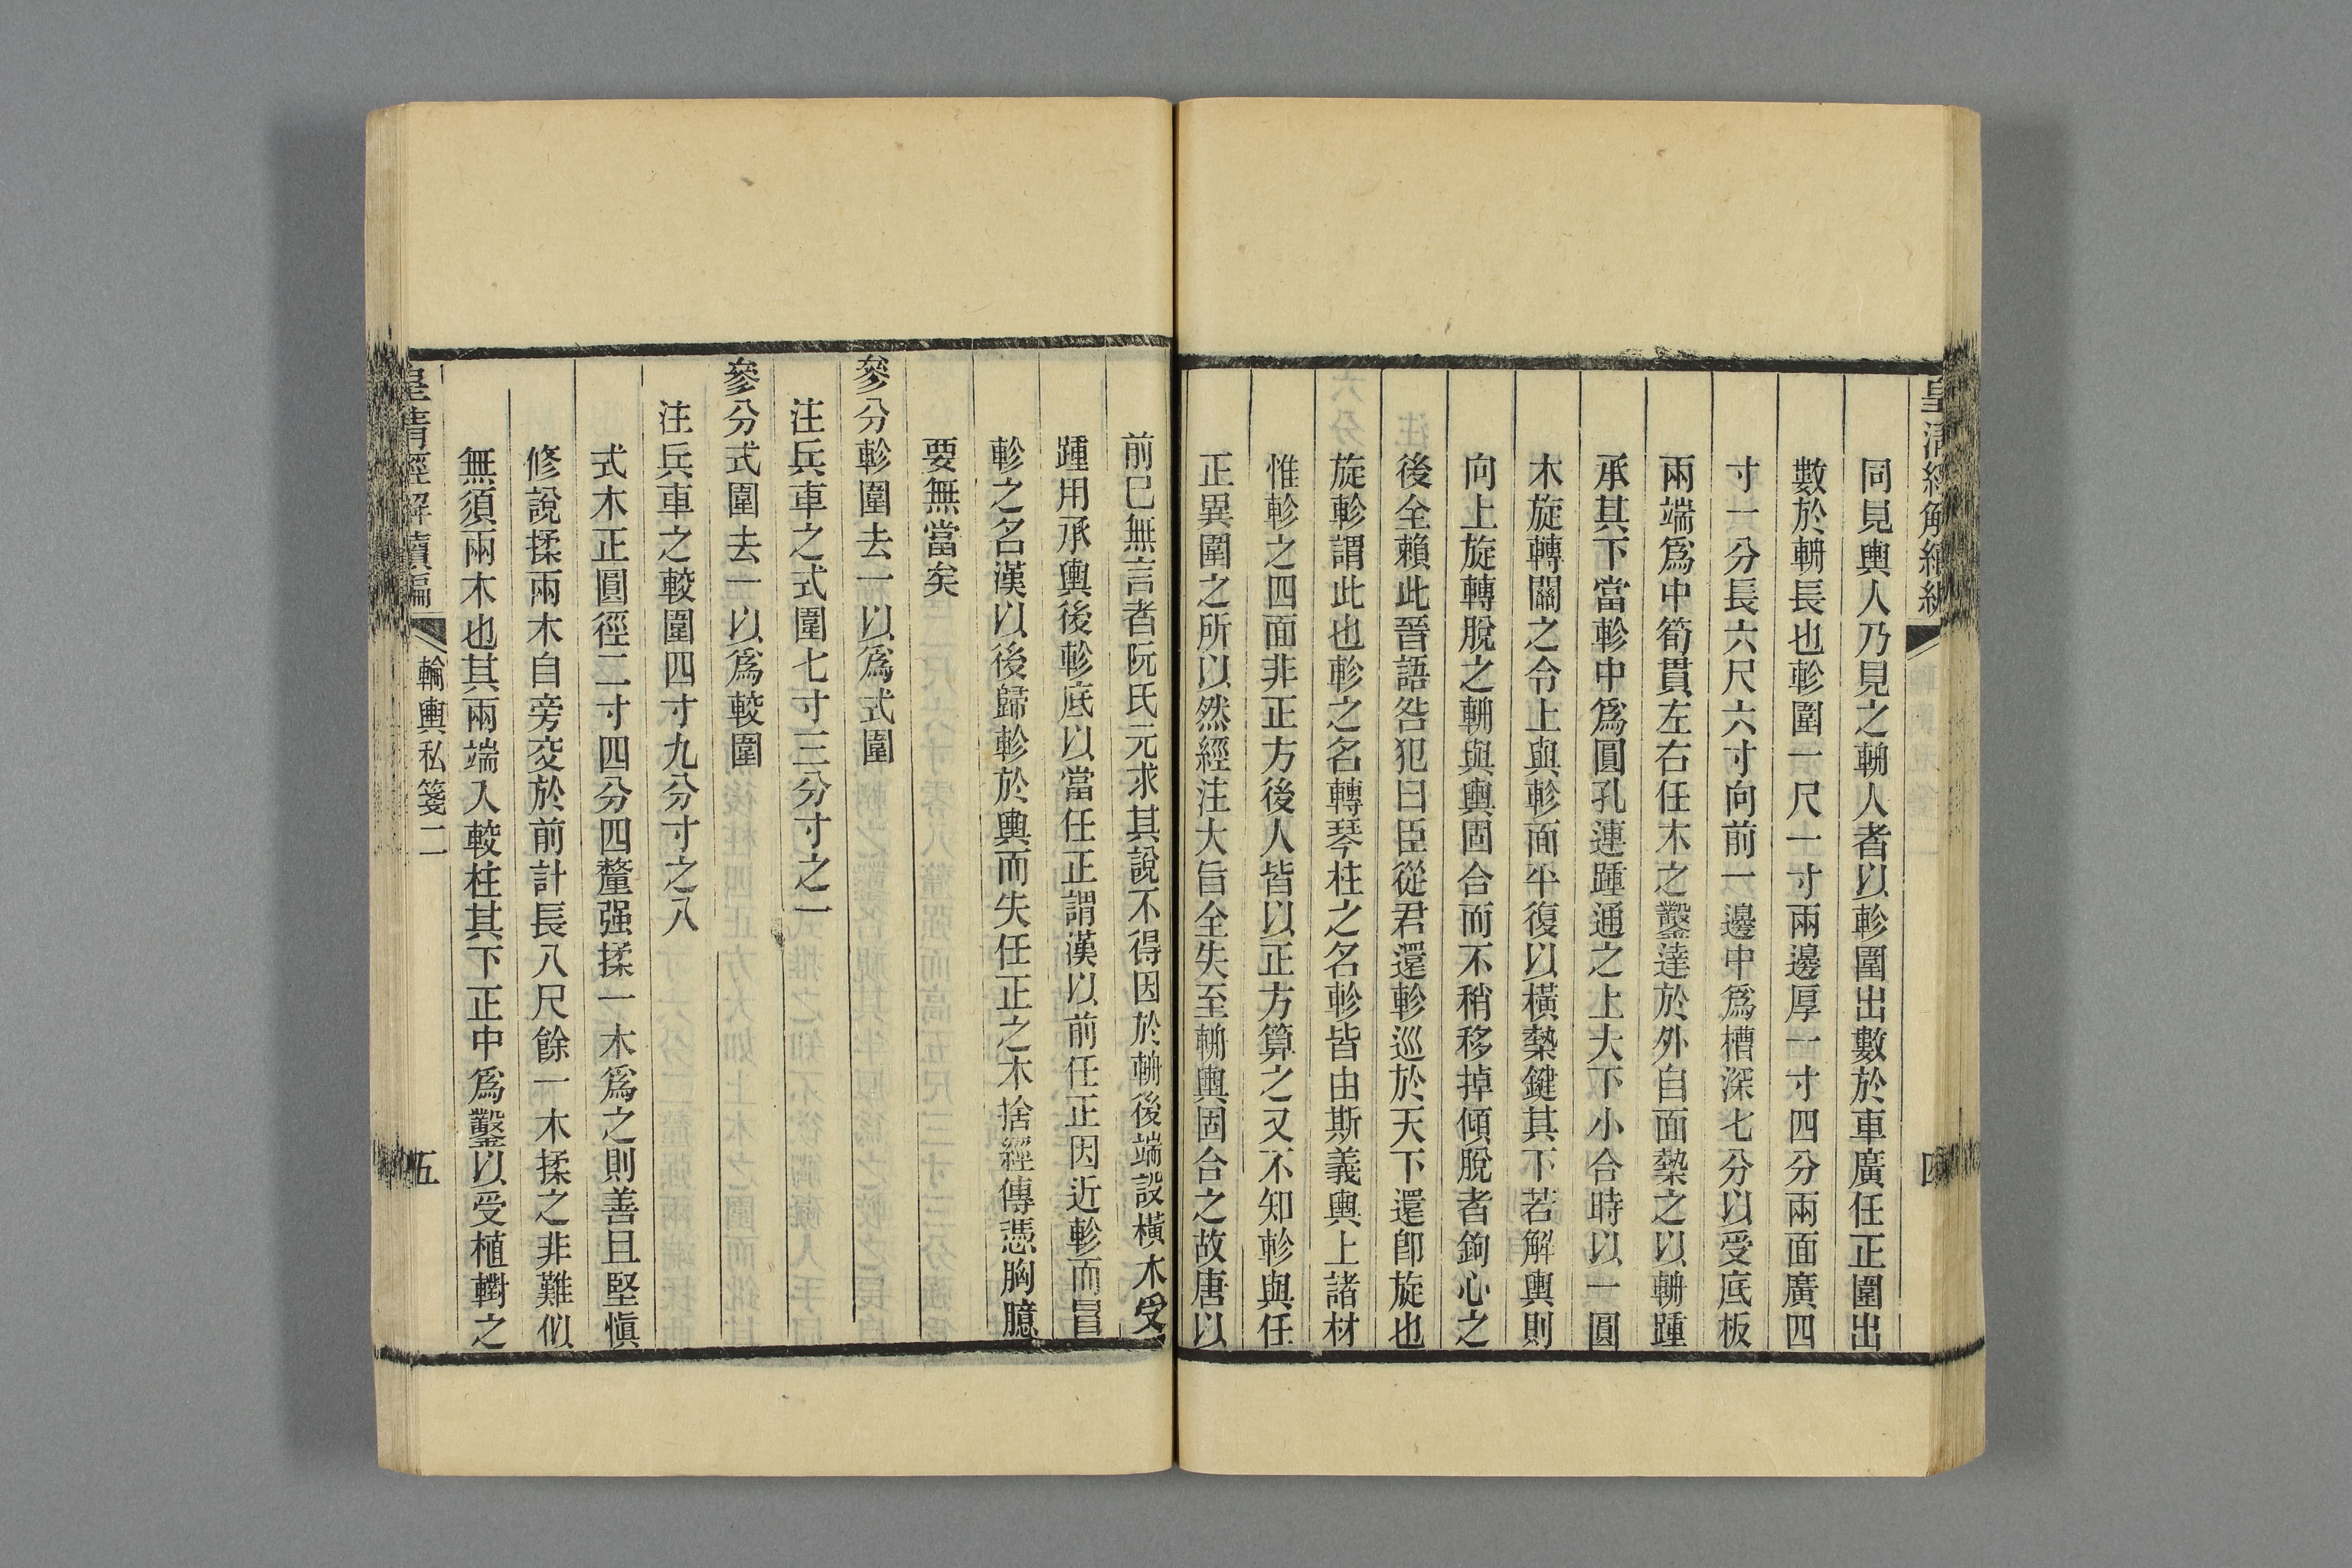 皇清經解續編
四
同見輿人乃見之輈人者以軫圍出數於車廣任正圍出
數於輈長也軫圍一尺一寸兩邊厚一寸四分兩面廣四
寸一分長六尺六寸向前一邊中爲槽深七分以受底板
兩端爲中筍貫左右任木之鑿達於外自面槷之以輈踵
承其下當軫中爲圓孔連踵通之上大下小合時以一圓
木旋轉關之令上與軫面平復以橫槷鍵其下若解輿則
向上旋轉脫之輈與輿固合而不稍移掉傾脫者鉤心之
後全賴此晉語咎犯曰臣從君還軫巡於天下還卽旋也
旋軫謂此也軫之名轉琴柱之名軫皆由斯義輿上諸材
惟軫之四面非正方後人皆以正方算之又不知軫與任
正異圍之所以然經注大旨全失至輈輿固合之故唐以
前已無言者阮氏元求其說不得因於輈後端設橫木受
踵用承輿後軫底以當任正謂漢以前任正因近軫而冒
軫之名漢以後歸軫於輿而失任正之木捨經傳憑胸臆
要無當矣
參分軫圍去一以爲式圍
注兵車之式圍七寸三分寸之一
參分式圍去一以爲較圍
注兵車之較圍四寸九分寸之八
式木正圓徑二寸四分四釐强揉一木爲之則善且堅愼
修說揉兩木自旁交於前計長八尺餘一木揉之非難似
無須兩木也其兩端入較柱其下正中爲鑿以受植轛之
皇清經解續編
輪輿私箋二
五